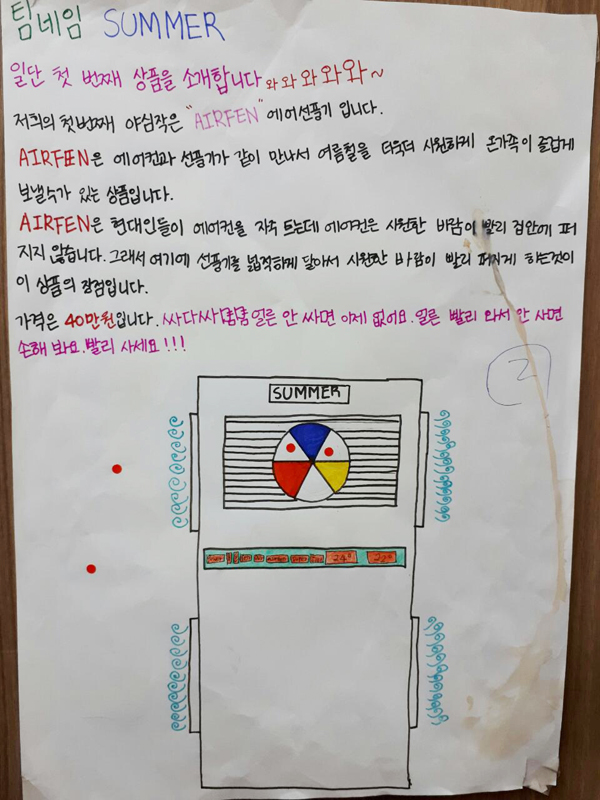 팀네임 SUMMER
일단 첫 번째 상품을 소개합니다 와 와 와 와 와~
저희의 첫번째 야심작은 "AIRFEN" 에어선풍기 입니다.
AIRFEN은 에어컨과 선풍기가 같이 만나서 여름철을 더욱더 시원하게 온가족이 즐겁게
보낼수가 있는 상품입니다.
AIRFEN은 현대인들이 에어컨을 자주 트는데 에어컨은 시원한 바람이 빨리 집안에 퍼
지지 않습니다. 그래서 여기에 선풍기를 넓적하게 달아서 시원한 바람이 빨리 퍼지게 하는것이
이 상품의 장점입니다.
가격은 40만원입니다. 싸다싸 얼른 안 싸면 이제 없어요. 얼른 빨리 와서 안 사면
손해 봐요. 빨리 사세요!!!
2
SUMMER
24°